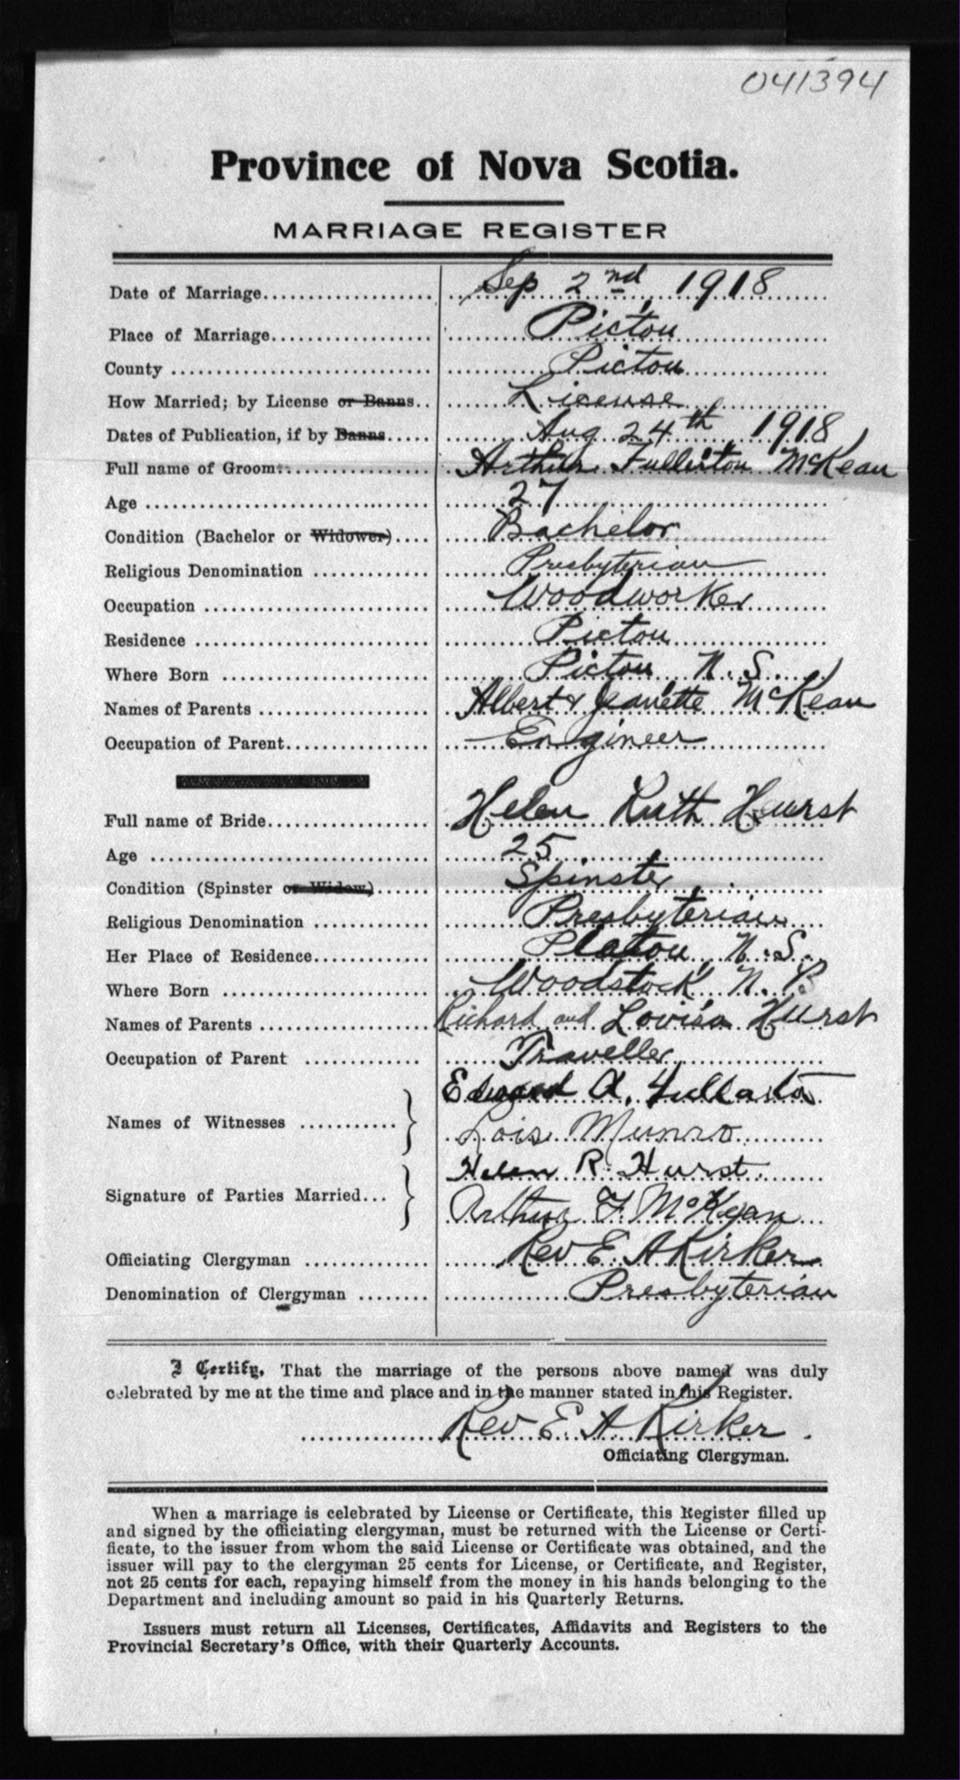 041394
Province of Nova Scotia.
MARRIAGE REGISTER
Date of Marriage Sep 2nd 1918
Place of Marriage Pictou
County Pictou
How Married; by License or Banns License
Dates of Publication, if by Banns Aug 24th 1918
Full name of Groom Arthur Fullerton McKean
Age 27
Condition (Bachelor or Widower) Bachelor
Religious Denomination Presbyterian
Occupation Woodworker
Residence Pictou
Where Born Pictou N.S.
Names of Parents Albert & Jeanette McKean
Occupation of Parent Engineer
Full name of Bride Helen Ruth Hurst
Age 25
Condition (Spinster or Widow) Spinster
Religious Denomination Presbyterian
Her Place of Residence Pictou N.S.
Where Born Woodstock N.B
Names of Parents Richard and Lovisa Hurst
Occupation of Parent Traveller
Edward A. Fullerton
Names of Witnesses
Lois Munro
Helen R. Hurst
Signature of Parties Married...
Arthur F. McKean
Officiating Clergyman Rev E. A Kirker
Denomination of Clergyman Presbyterian
I Certify, That the marriage of the persons above named was duly
celebrated by me at the time and place and in the manner stated in this Register.
Rev E. A Kirker.
Officiating Clergyman.
When a marriage is celebrated by License or Certificate, this Register filled up
and signed by the officiating clergyman, must be returned with the License or Certi-
ficate, to the issuer from whom the said License or Certificate was obtained, and the
issuer will pay to the clergyman 25 cents for License, or Certificate, and Register,
not 25 cents for each, repaying himself from the money in his hands belonging to the
Department and including amount so paid in his Quarterly Returns.
Issuers must return all Licenses, Certificates, Affidavits and Registers to the
Provincial Secretary's Office, with their Quarterly Accounts.